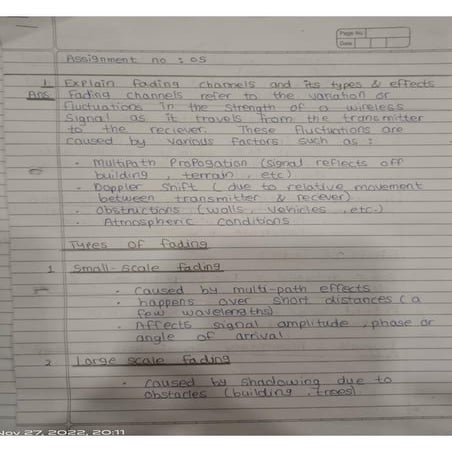 Page No
Date
Assignment no : 05
1. Explain fading channels and its types & effects
Ans Fading channels refer to the variation or
fluctuations in the strength of a wireless
signal as it travels from the transmitter
to the reciever. These fluctuations are
caused by various factors such as :
• Multipath Propogation (signal reflects off
building, terrain, etc)
• Doppler shift (due to relative movement
between transmitter & recever)
• Obstructions (walls, vehicles, etc.)
• Atmospheric conditions
Types of fading
1 Small-scale fading
• caused by multi-path effects
• happens over short distances (a
few wavelengths)
• Affects signal amplitude, phase or
angle of arrival
2. Large scale fading
• caused by shadowing due to
obstacles (building, trees)
Nov 27, 2022, 20:11